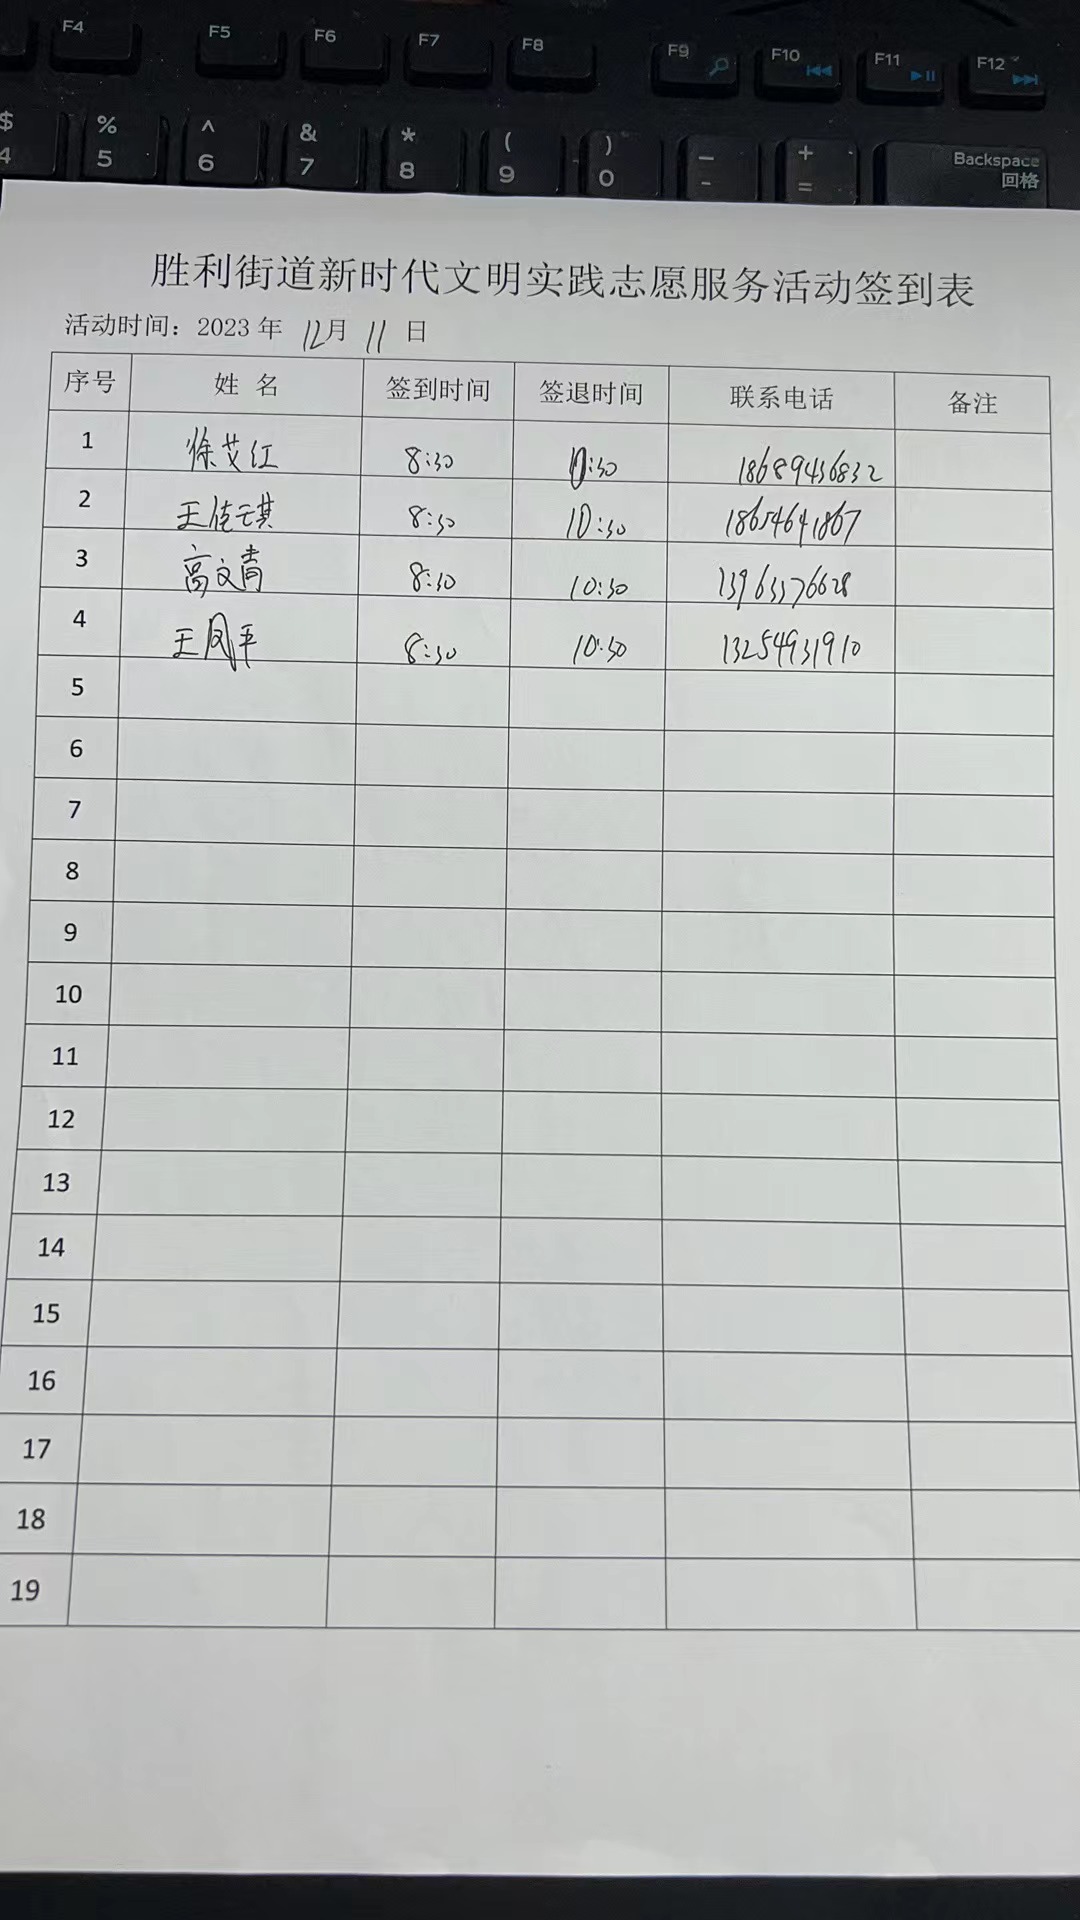 F4 F5 F6 F7 F8 F9 F10 F11 F12
$ % ^ & * ( ) — + Backspace
4 5 6 7 8 9 0 - = 回格
胜利街道新时代文明实践志愿服务活动签到表
活动时间：2023 年 12月 11 日
序号 姓 名 签到时间 签退时间 联系电话 备注
1 徐艾红 8:30 10:30 18689436832
2 王佳琪 8:30 10:30 18654641867
3 高文青 8:30 10:30 13963376628
4 王凤平 8:30 10:30 13254931910
5
6
7
8
9
10
11
12
13
14
15
16
17
18
19